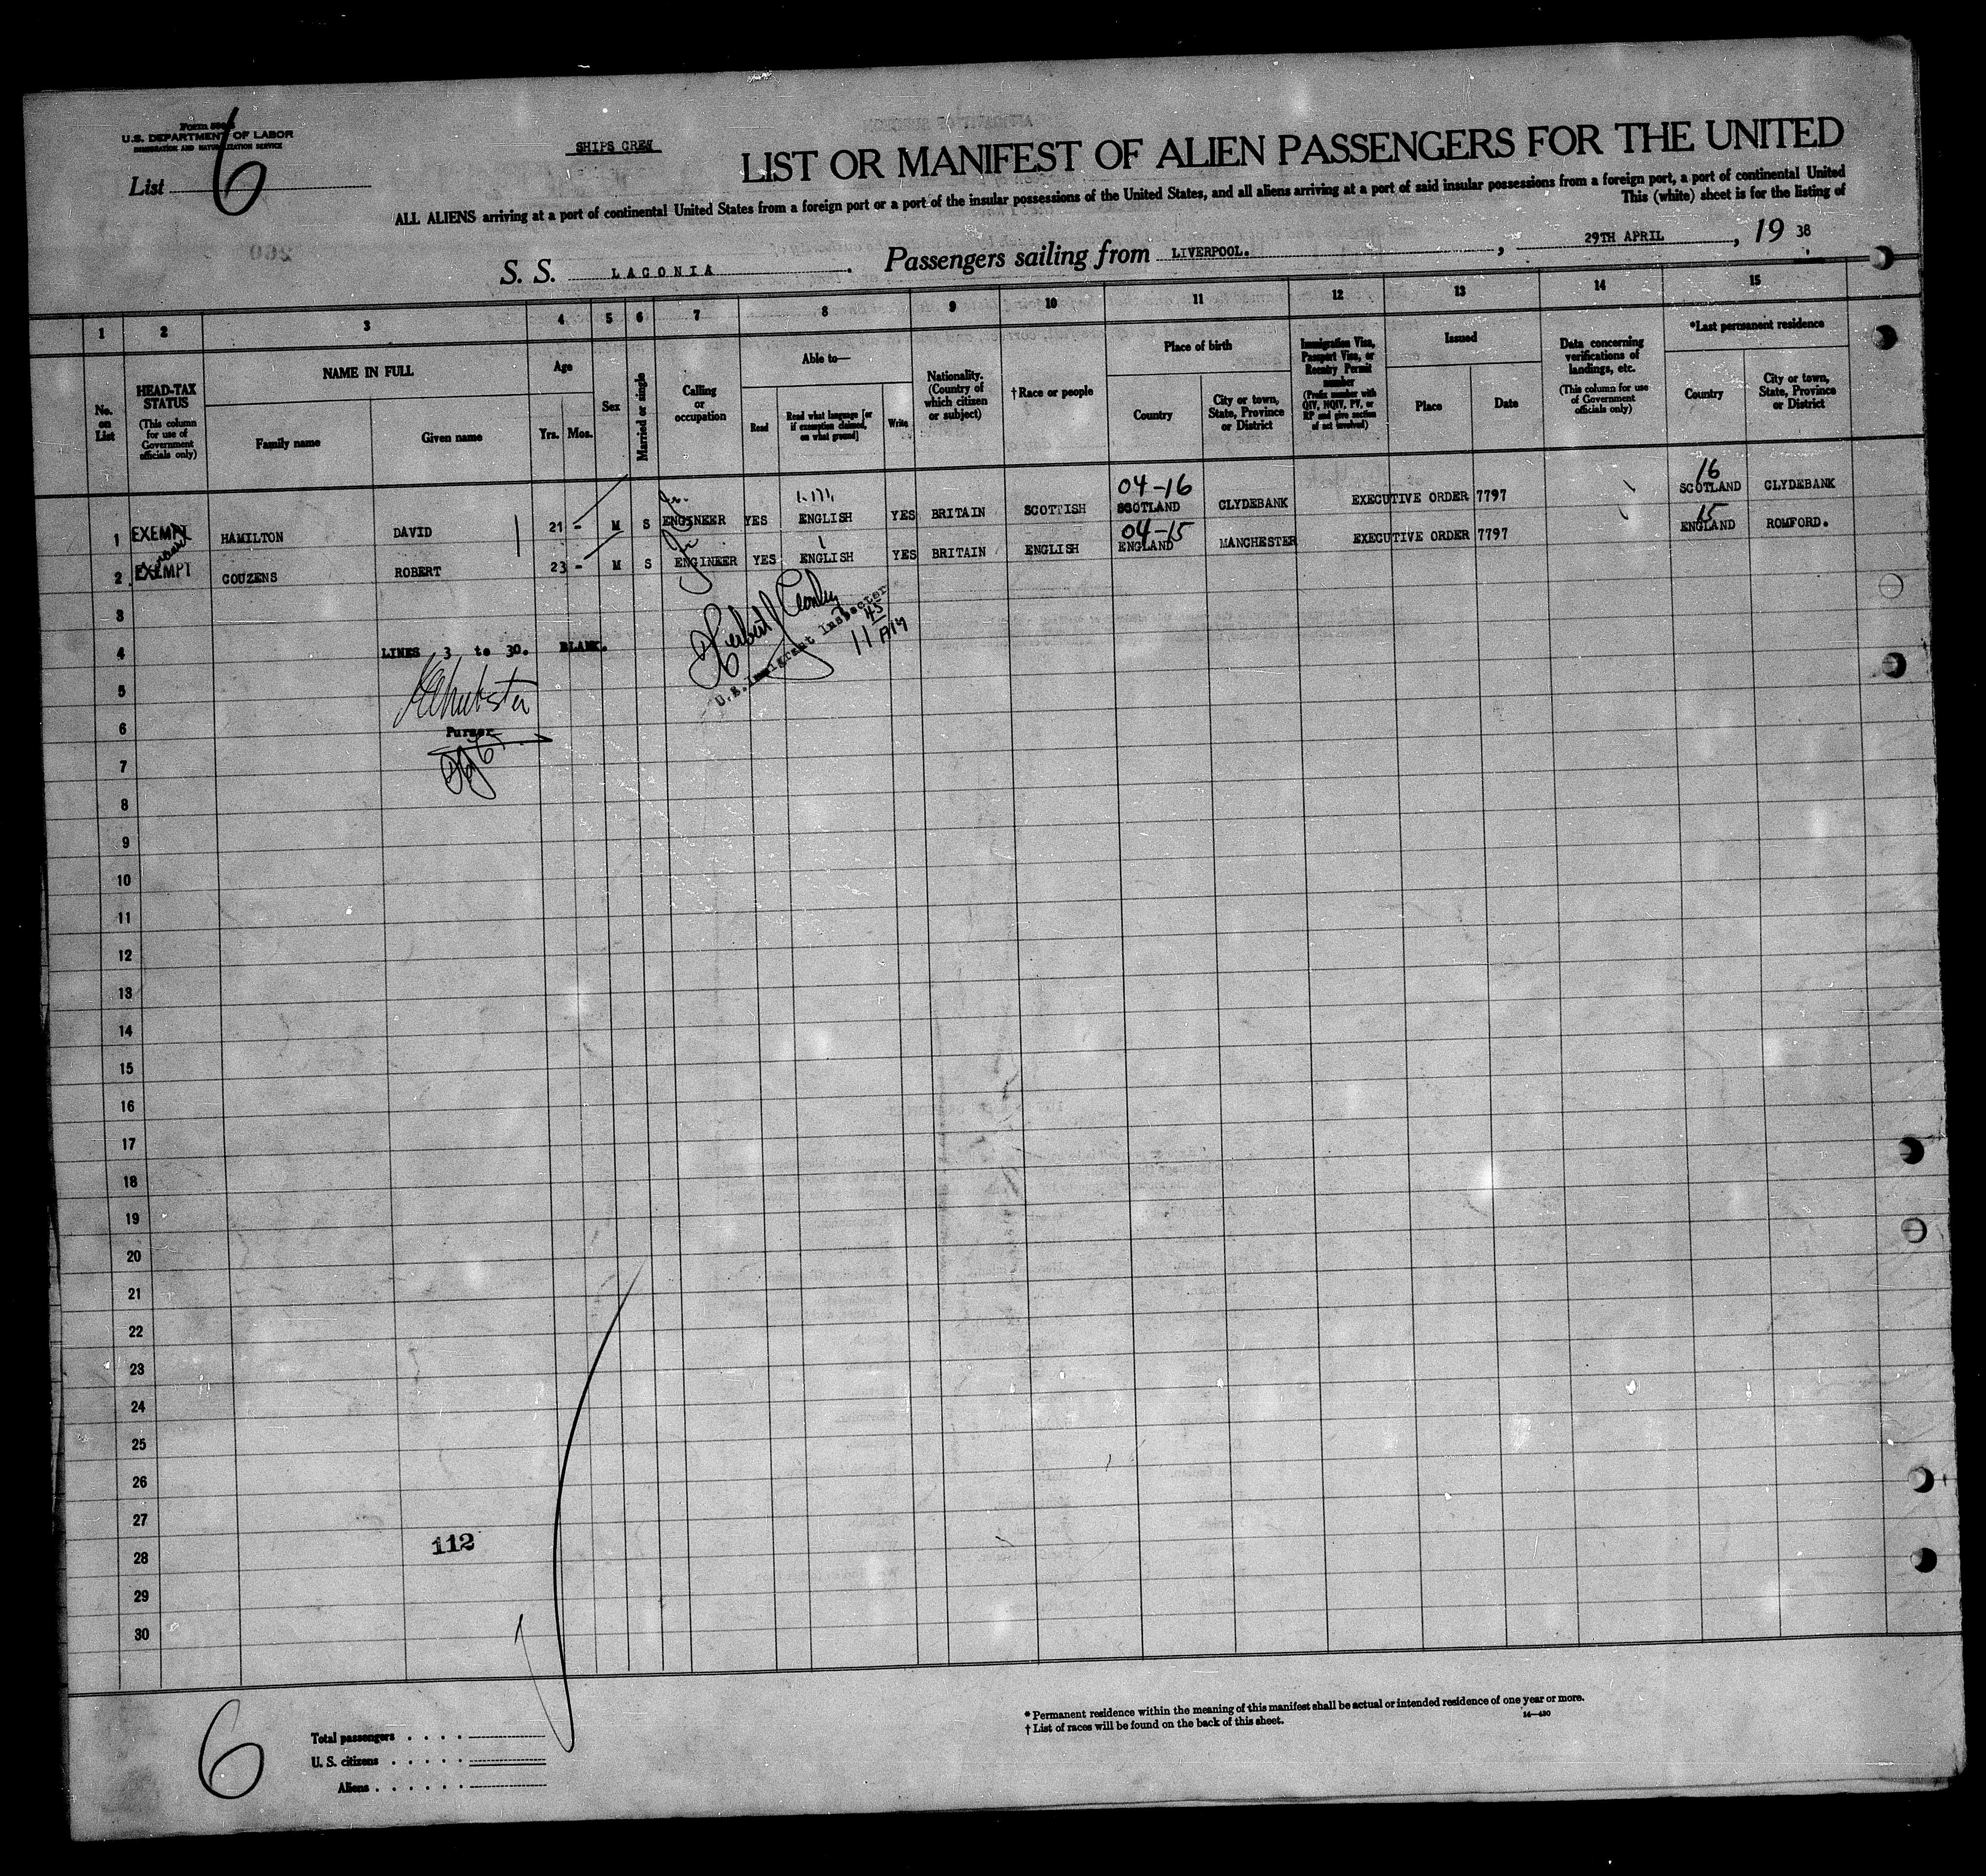 Form 500
U.S. DEPARTMENT OF LABOR
IMMIGRATION AND NATURALIZATION SERVICE
List 6
SHIPS CREW
LIST OR MANIFEST OF ALIEN PASSENGERS FOR THE UNITED
ALL ALIENS arriving at a port of continental United States from a foreign port or a port of the insular possessions of the United States, and all aliens arriving at a port of said insular possessions from a foreign port, a port of continental United
This (white) sheet is for the listing of
S. S. LACONIA. Passengers sailing from LIVERPOOL., 29TH APRIL, 19 38
1 2 3 4 5 6 7 8 9 10 11 12 13 14 15
No. on List
HEAD-TAX STATUS (This column for use of Government officials only)
NAME IN FULL
Family name
Given name
Age
Yrs. Mos.
Sex
Married or single
Calling or occupation
Able to—
Read
Read what language [or if exemption claimed, on what ground]
Write
Nationality. (Country of which citizen or subject)
†Race or people
Place of birth
Country
City or town, State, Province or District
Immigration Visa, Passport Visa, or Reentry Permit number (Prefix number with QIV, NQIV, PV, or RP and give section of act involved)
Issued
Place
Date
Data concerning verifications of landings, etc. (This column for use of Government officials only)
*Last permanent residence
Country
City or town, State, Province or District
04-16
16
1 EXEMPT HAMILTON DAVID 21 - M S ENGINEER YES ENGLISH YES BRITAIN SCOTTISH SCOTLAND CLYDEBANK EXECUTIVE ORDER 7797 SCOTLAND CLYDEBANK
04-15
15
2 EXEMPT COUZENS ROBERT 23 - M S ENGINEER YES ENGLISH YES BRITAIN ENGLISH ENGLAND MANCHESTER EXECUTIVE ORDER 7797 ENGLAND ROMFORD.
3
4 LINES 3 to 30. BLANK.
U.S. Immigrant Inspector
11 45 AM
5
6
Purser
7
8
9
10
11
12
13
14
15
16
17
18
19
20
21
22
23
24
25
26
27
112
28
29
30
6
Total passengers
U. S. citizens
Aliens
* Permanent residence within the meaning of this manifest shall be actual or intended residence of one year or more.
† List of races will be found on the back of this sheet.
14—430